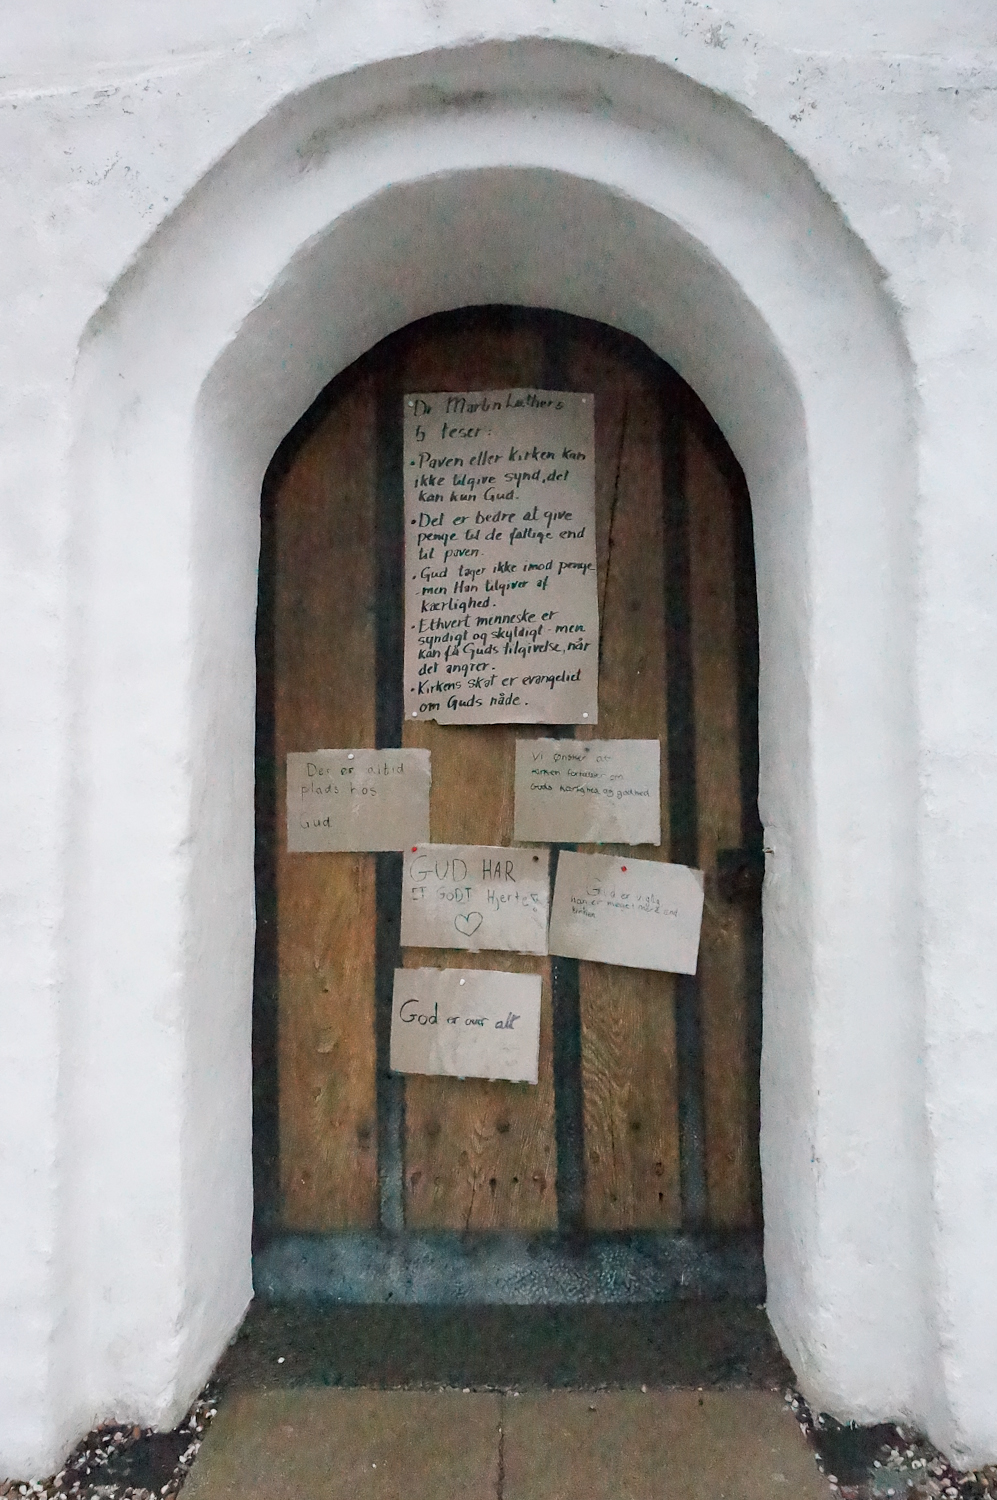 Dr Martin Luthers
5 teser:
• Paven eller kirken kan
ikke tilgive synd, det
kan kun Gud.
• Det er bedre at give
penge til de fattige end
til paven.
• Gud tager ikke imod penge
- men Han tilgiver af
kærlighed.
• Ethvert menneske er
syndigt og skyldigt - men
kan få Guds tilgivelse, når
det angrer.
• Kirkens skat er evangeliet
om Guds nåde.
Der er altid
plads hos
Gud
Vi ønsker at
kirken fortæller om
Guds og godhed
GUD HAR
ET GODT Hjerte!
han er meget mere end
kirken
God er over alt